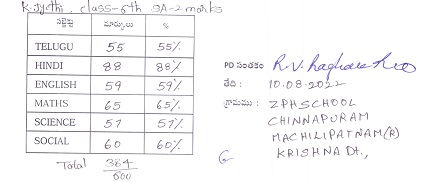 K. Jyothi, class-6th SA-2 marks
సబ్జెక్టు మార్కులు %
TELUGU 55 55%
HINDI 88 88%
ENGLISH 59 59%
MATHS 65 65%
SCIENCE 57 57%
SOCIAL 60 60%
Total 384/600
PD సంతకం R.V. Raghava Rao
తేది : 10.08.2022
గ్రామము : ZPHSCHOOL
CHINNAPURAM
MACHILIPATNAM(R)
KRISHNA Dt.,